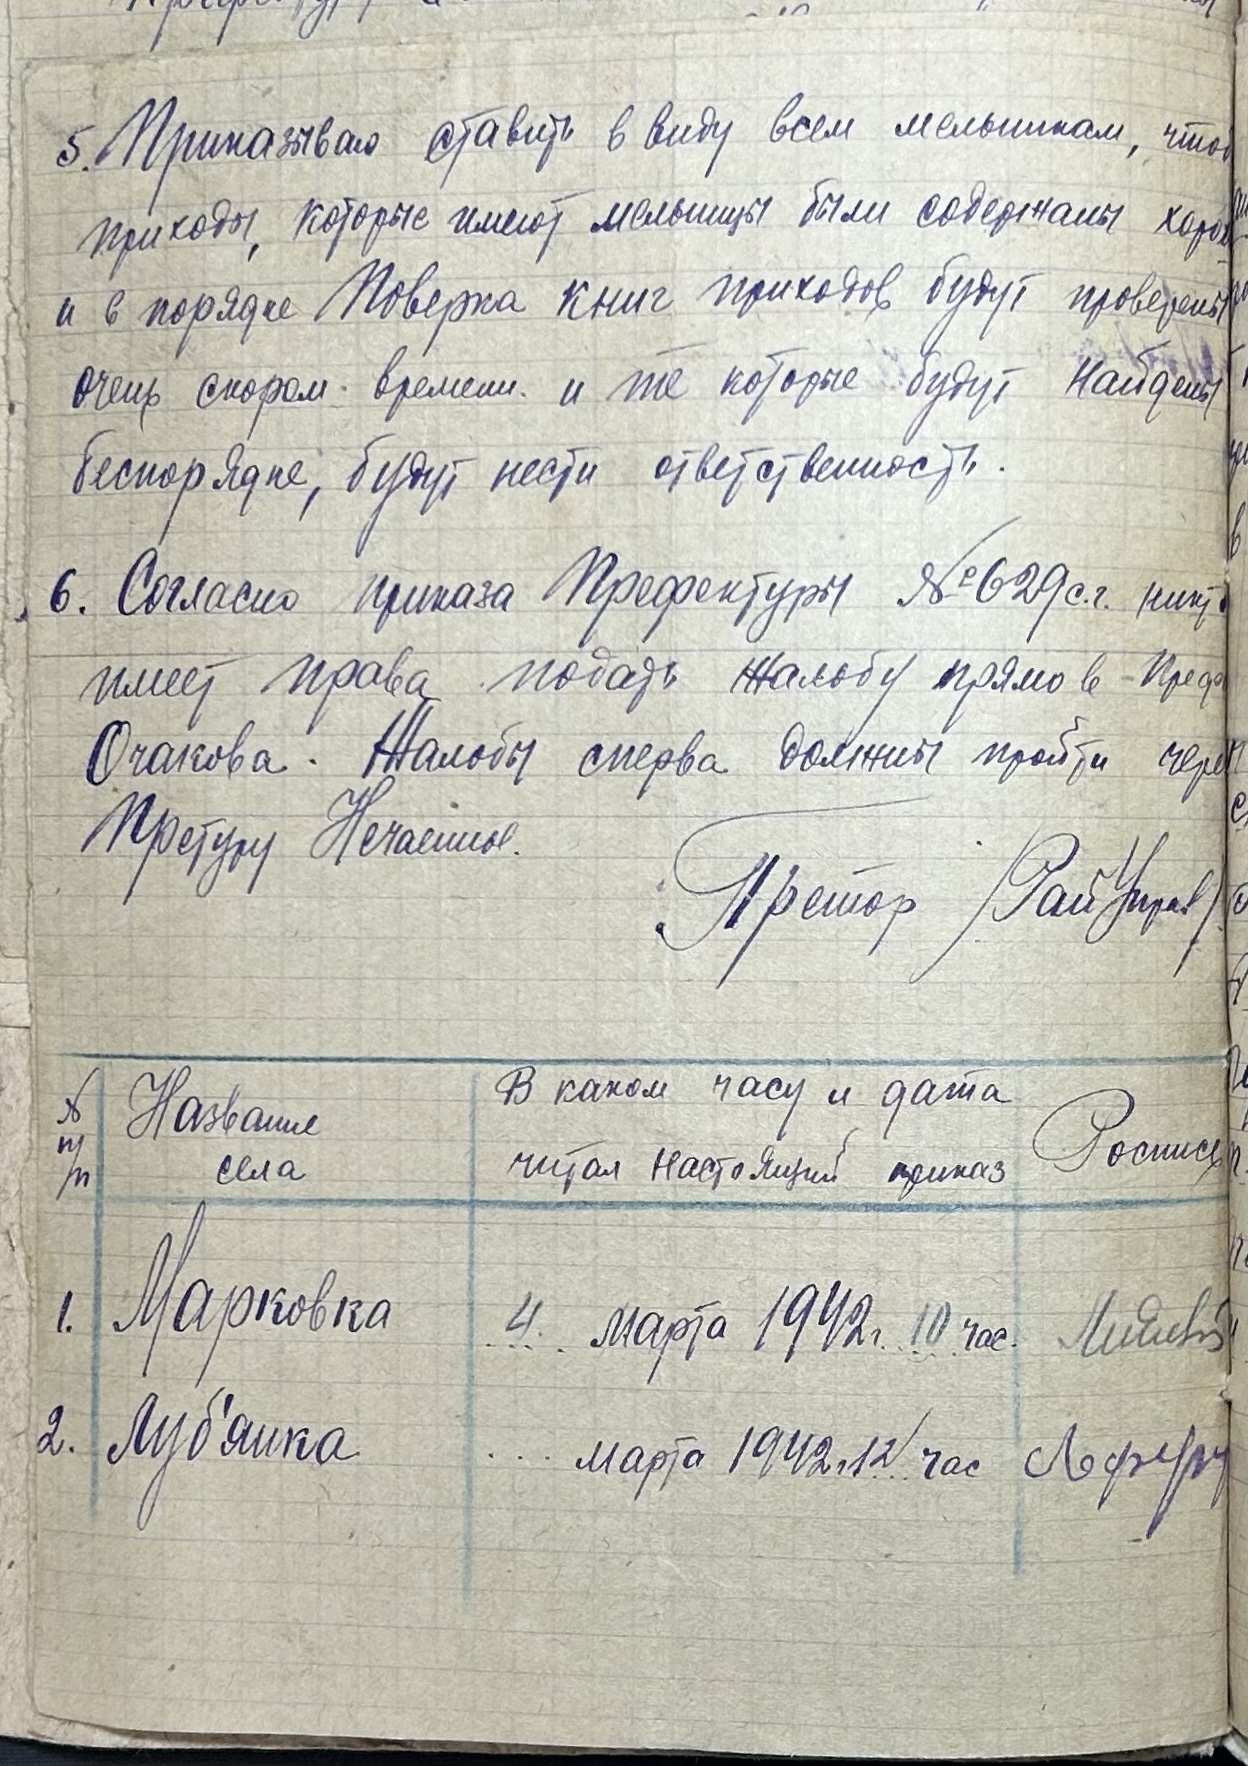 5. Приказываю ставить в виду всем мельникам, чтоб
приходы, которые имеют мельницы были содержаны хорош
и в порядке Поверка книг приходов будут проверены
очень скором времени. и те которые будут найдены
беспорядке, будут нести ответственность.
6. Согласно приказа Префектуры № 629 с.г. никто
имеет права подать жалобу прямо в Преф
Очакова. Жалобы сперва должны пройти через
Претуру Нечаянное.
Претор /РайУправ/
№ п/п Название села В каком часу и дата читал настоящий приказ Роспись
1. Марковка 4. марта 1942 г. 10 час.
2. Луб'янка ... марта 1942 г. 12 час